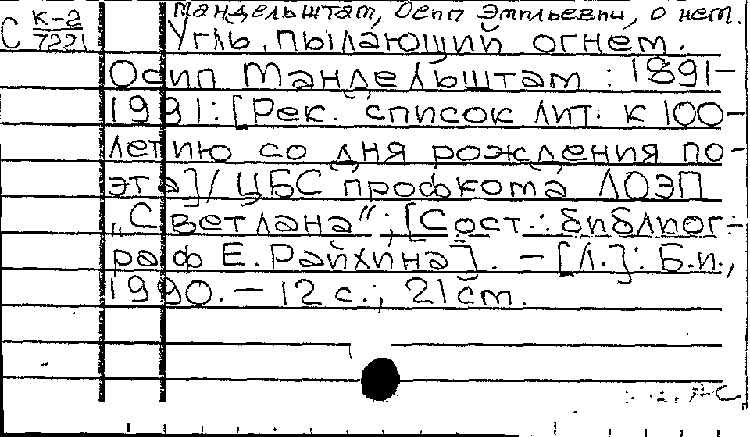 Мандельштам, Осип Эмильевич, о нем.
С К-2/7221 Угль, пылающий огнем.
Осип Мандельштам : 1891-
1991: [Рек. список лит. к 100-
летию со дня рождения по-
эта]/ ЦБС профкома ЛОЭП
„Светлана“; [Сост.: библиог-
раф Е. Райхина]. - [Л.]: Б.и.,
1990. - 12 с.; 21 см.